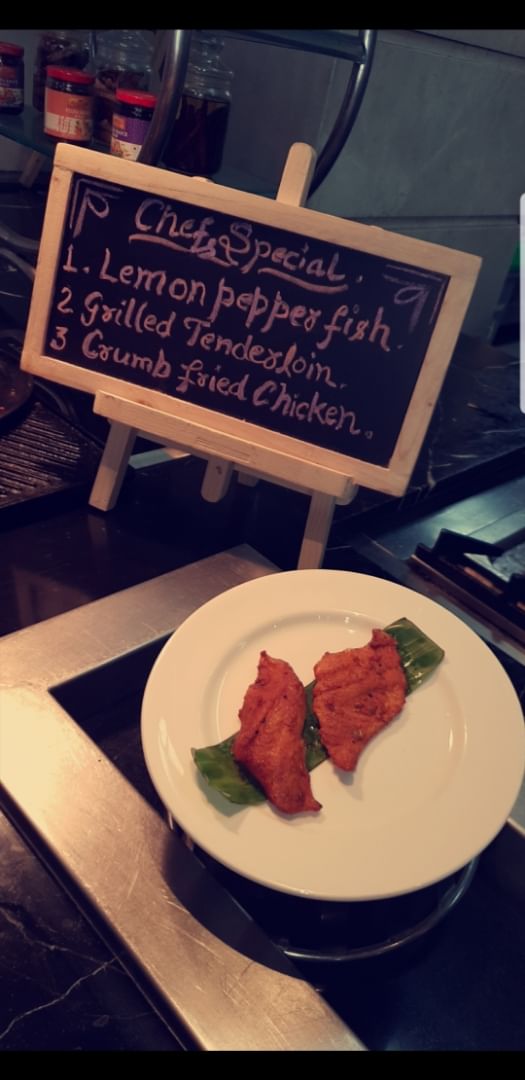 Chef's Special.
1. Lemon pepper fish.
2 Grilled Tenderloin.
3 Crumb fried Chicken.